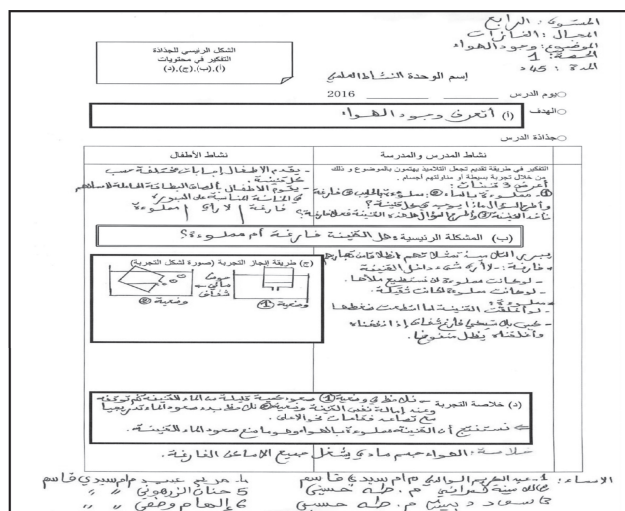 المستوى: الرابع
المجال: الغازات
الموضوع: وجود الهواء
الحصة: 1
المدة: 45د
الشكل الرئيسي للجذاذة
التفكير في محتويات
(أ)،(ب)،(ج)،(د)
إسم الوحدة النشاط العلمي
يوم الدرس 2016
الهدف (أ) أتعرف وجود الهواء
جذاذة الدرس
نشاط المدرس والمدرسة
نشاط الأطفال
التفكير في طريقة تقديم تجعل التلاميذ يهتمون بالموضوع و ذلك
من خلال تجربة بسيطة أو مداولتهم أجسام.
أعرض 3 قنينات:
① مملوءة بالماء ② مملوءة بالحليب ③ فارغة
وأطرح السؤال ماذا يوجد في كل قنينة؟
نأخذ القنينة ③ وأطرح السؤال هل هذه القنينة فعلا فارغة؟
- يقدم الأطفال إجابات مختلفة حسب
كل قنينة.
- يقوم الأطفال بإلصاق البطاقة الحاملة لاسمهم
في الخانة المناسبة على السبورة
فارغة | لا رأي | مملوءة
(ب) المشكلة الرئيسية: هل القنينة فارغة أم مملوءة؟
فارغة: - لا أرى شيء داخل القنينة
- لو كانت مملوءة لن نستطيع ملأها.
- لو كانت مملوءة لكانت ثقيلة.
مملوءة:
- لو أغلقت القنينة لما استطعت ضغطها
- كيس بلاستيكي فارغ شفاف إذا نفخناه
وأغلقناه يظل منفوخا.
(ج) طريقة إنجاز التجربة (صورة لشكل التجربة)
حوض
مائي
شفاف
وضعية ①
وضعية ②
(د) خلاصة التجربة - نلاحظ في وضعية ① صعود كمية قليلة من الماء للقنينة ثم توقفه
وعند إمالة نفس القنينة وضعية ② نلاحظ بدء صعود الماء تدريجيا
مع تصاعد فقاعات نحو الأعلى.
⇐ نستنتج أن القنينة مملوءة بالهواء وهو ما منع صعود الماء للقنينة.
خلاصة: الهواء جسم مادي يشغل جميع الأماكن الفارغة.
الأسماء: 1- عبد الكريم الوالي م/م سيدي قاسم
م. طه حسين
3 سعاد م. طه حسين
4- مريم م/م سيدي قاسم
5 حنان الزرهوني " "
6 إلهام وهبي " "